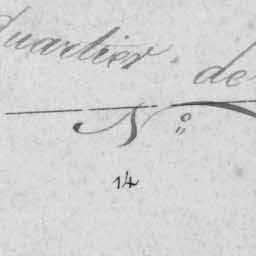 Quartier de
N°
14